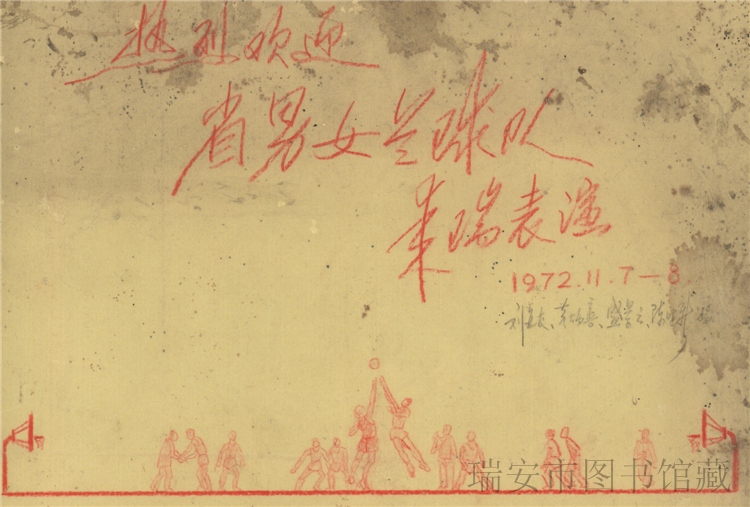 热烈欢迎
省男女兰球队
来瑞表演
1972.11.7-8
瑞安市图书馆藏